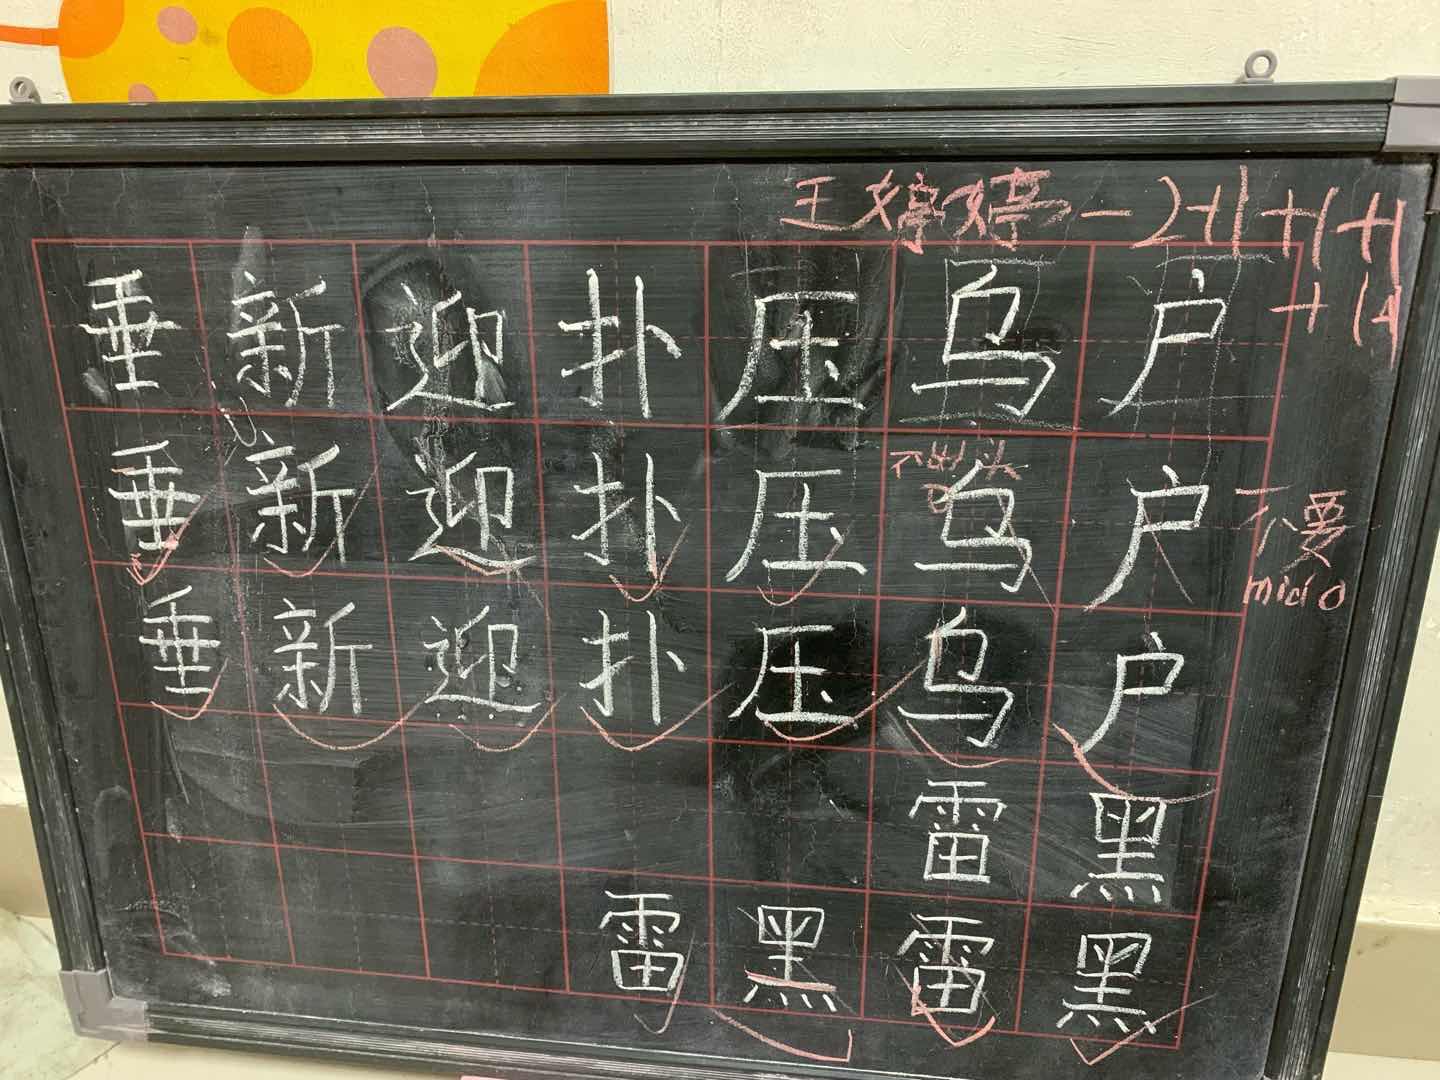 王婷婷-2+1+1+1
+1A
垂新迎扑压乌户
不出头
垂新迎扑压乌户
不要
垂新迎扑压乌户
雷黑
雷黑雷黑